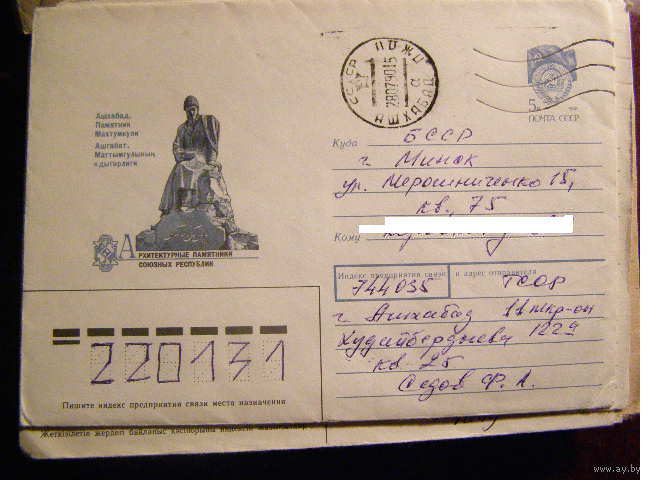 Ашхабад.
Памятник
Махтумкули
Ашгабат.
Магтымгулының
ядыгәрлиги
АРХИТЕКТУРНЫЕ ПАМЯТНИКИ
СОЮЗНЫХ РЕСПУБЛИК
СССР
28079015
5к
ПОЧТА СССР
Куда БССР
г. Минск
ул. Мерошниченко 15,
кв. 75
Кому
Индекс предприятия связи и адрес отправителя
744035 ТССР
г Ашхабад 11 мкр-он
Худайбердыева 1229
кв 25
Седов Ф. А.
220131
Пишите индекс предприятия связи места назначения
www.ay.by